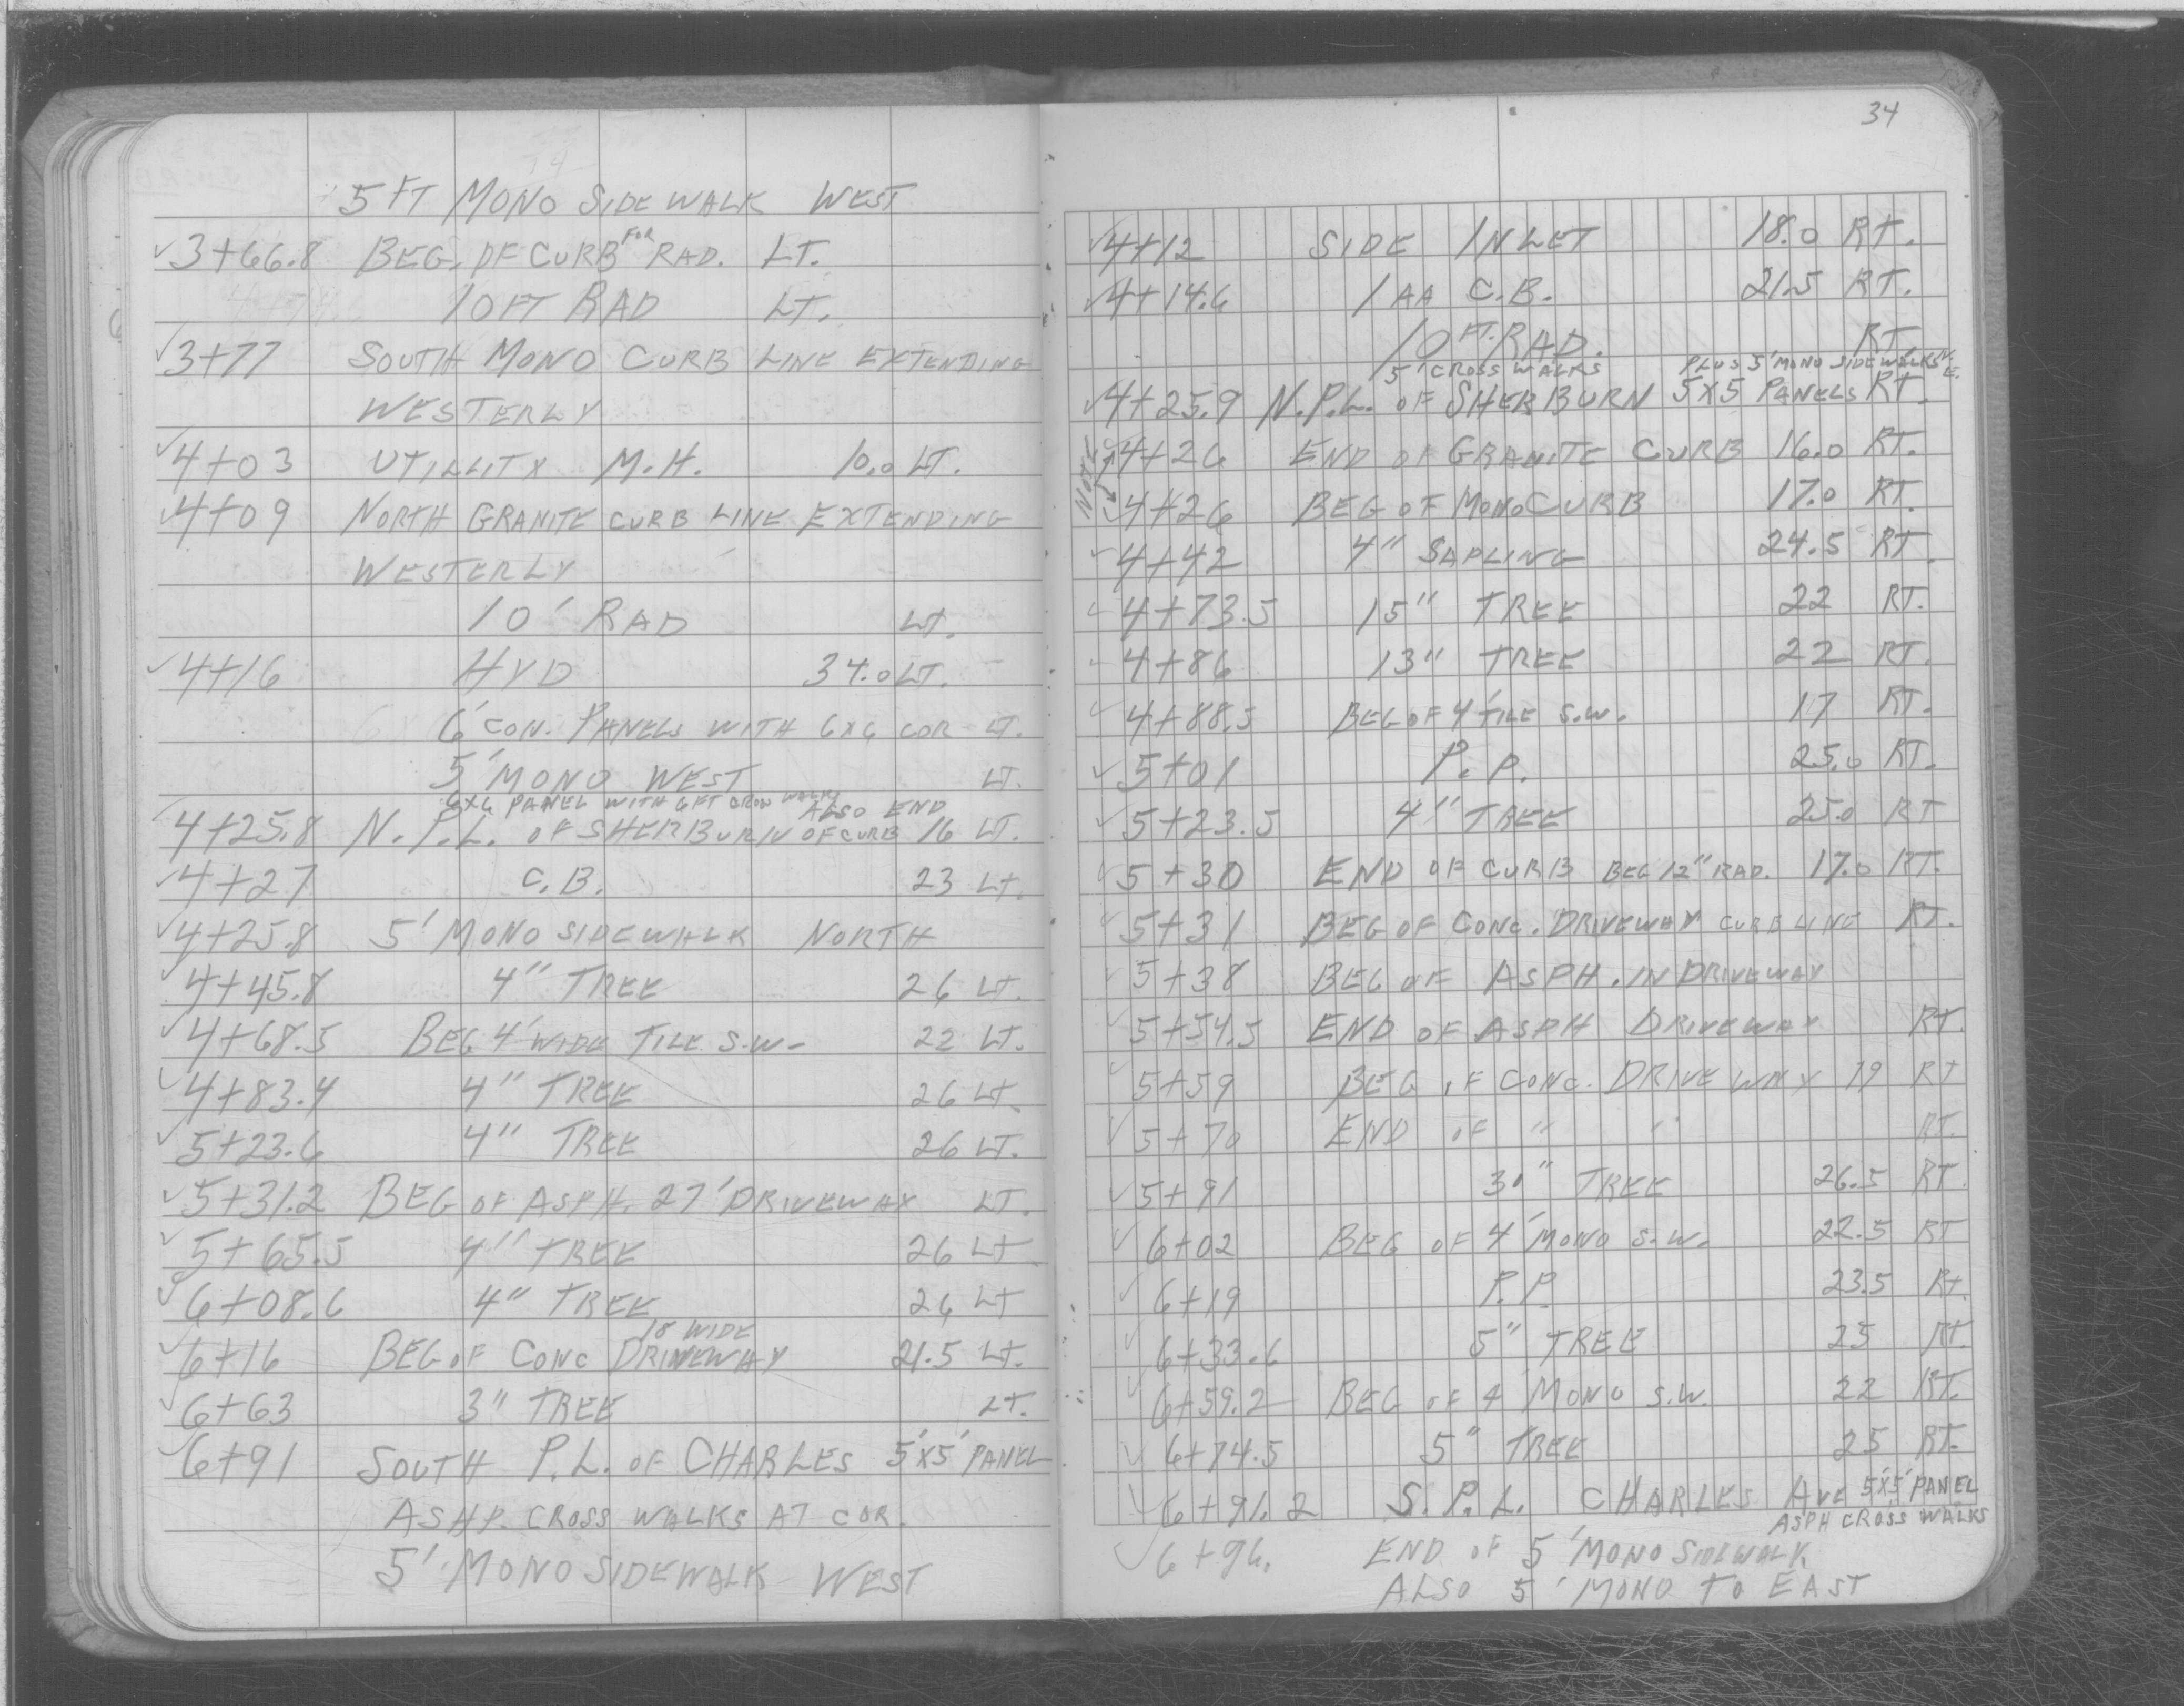 5 FT MONO SIDEWALK WEST
✓3+66.8 BEG. OF CURB FOR RAD. LT.
10 FT RAD LT.
✓3+77 SOUTH MONO CURB LINE EXTENDING
WESTERLY
✓4+03 UTILLITY M.H. 10.0 LT.
✓4+09 NORTH GRANITE CURB LINE EXTENDING
WESTERLY
10' RAD LT.
✓4+16 HYD 34.0 LT.
6' CON. PANELS WITH 6X6 COR LT.
5' MONO WEST LT.
6X6 PANEL WITH 6FT CROSS WALKS ALSO END
✓4+25.8 N.P.L. OF SHERBURN OF CURB 16 LT.
✓4+27 C.B. 23 LT.
✓4+25.8 5' MONO SIDEWALK NORTH
✓4+45.8 4" TREE 26 LT.
✓4+68.5 BEG 4' WIDE TILE S.W. 22 LT.
✓4+83.4 4" TREE 26 LT.
✓5+23.6 4" TREE 26 LT.
✓5+31.2 BEG OF ASPH. 27' DRIVEWAY LT.
✓5+65.5 4" TREE 26 LT
✓6+08.6 4" TREE 26 LT
18 WIDE
✓6+16 BEG OF CONC DRIVEWAY 21.5 LT.
✓6+63 3" TREE LT.
✓6+91 SOUTH P.L. OF CHARLES 5'X5' PANEL
ASHP. CROSS WALKS AT COR.
5' MONO SIDEWALK WEST
34
✓4+12 SIDE INLET 18.0 RT.
✓4+14.6 1 AA C.B. 21.5 RT.
10 FT. RAD. RT.
5' CROSS WALKS PLUS 5' MONO SIDEWALKS N. E.
✓4+25.9 N.P.L. OF SHERBURN 5X5 PANELS RT.
NOTE
✓4+26 END OF GRANITE CURB 16.0 RT.
✓4+26 BEG OF MONO CURB 17.0 RT.
✓4+42 4" SAPLING 24.5 RT.
✓4+73.5 15" TREE 22 RT.
✓4+86 13" TREE 22 RT.
✓4+88.5 BEG OF 4' TILE S.W. 17 RT.
✓5+01 P.P. 25.0 RT.
✓5+23.5 4" TREE 25.0 RT
✓5+30 END OF CURB BEG 12" RAD. 17.0 RT.
✓5+31 BEG OF CONC. DRIVEWAY CURB LINE RT.
✓5+38 BEG OF ASPH. IN DRIVEWAY
✓5+54.5 END OF ASPH DRIVEWAY RT.
✓5+59 BEG OF CONC. DRIVEWAY 19 RT
✓5+70 END OF " " RT.
✓5+91 TREE 26.5 RT.
✓6+02 BEG OF 4' MONO S.W. 22.5 RT
✓6+19 P.P. 23.5 RT.
✓6+33.6 5" TREE 25 RT.
✓6+59.2 BEG OF 4' MONO S.W. 22 RT.
✓6+74.5 5" TREE 25 RT.
✓6+91.2 S.P.L. CHARLES AVE 5'X5' PANEL
ASPH CROSS WALKS
✓6+96. END OF 5' MONO SIDEWALK
ALSO 5' MONO TO EAST